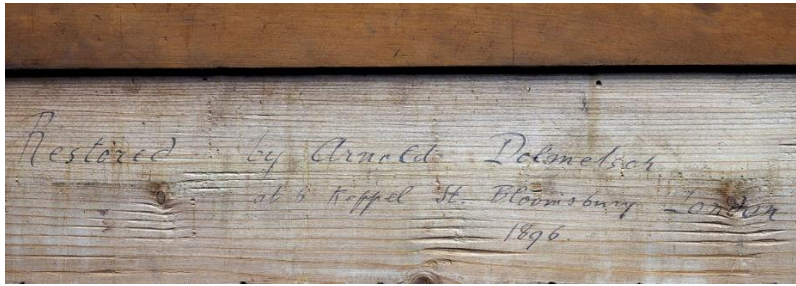 Restored by Arnold Dolmetsch
at 6 Keppel St. Bloomsbury London
1896.